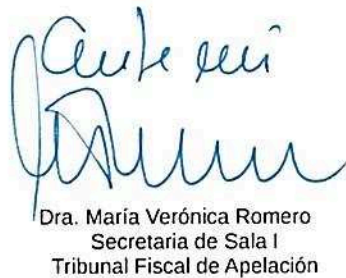 ante mi
Dra. María Verónica Romero
Secretaria de Sala I
Tribunal Fiscal de Apelación